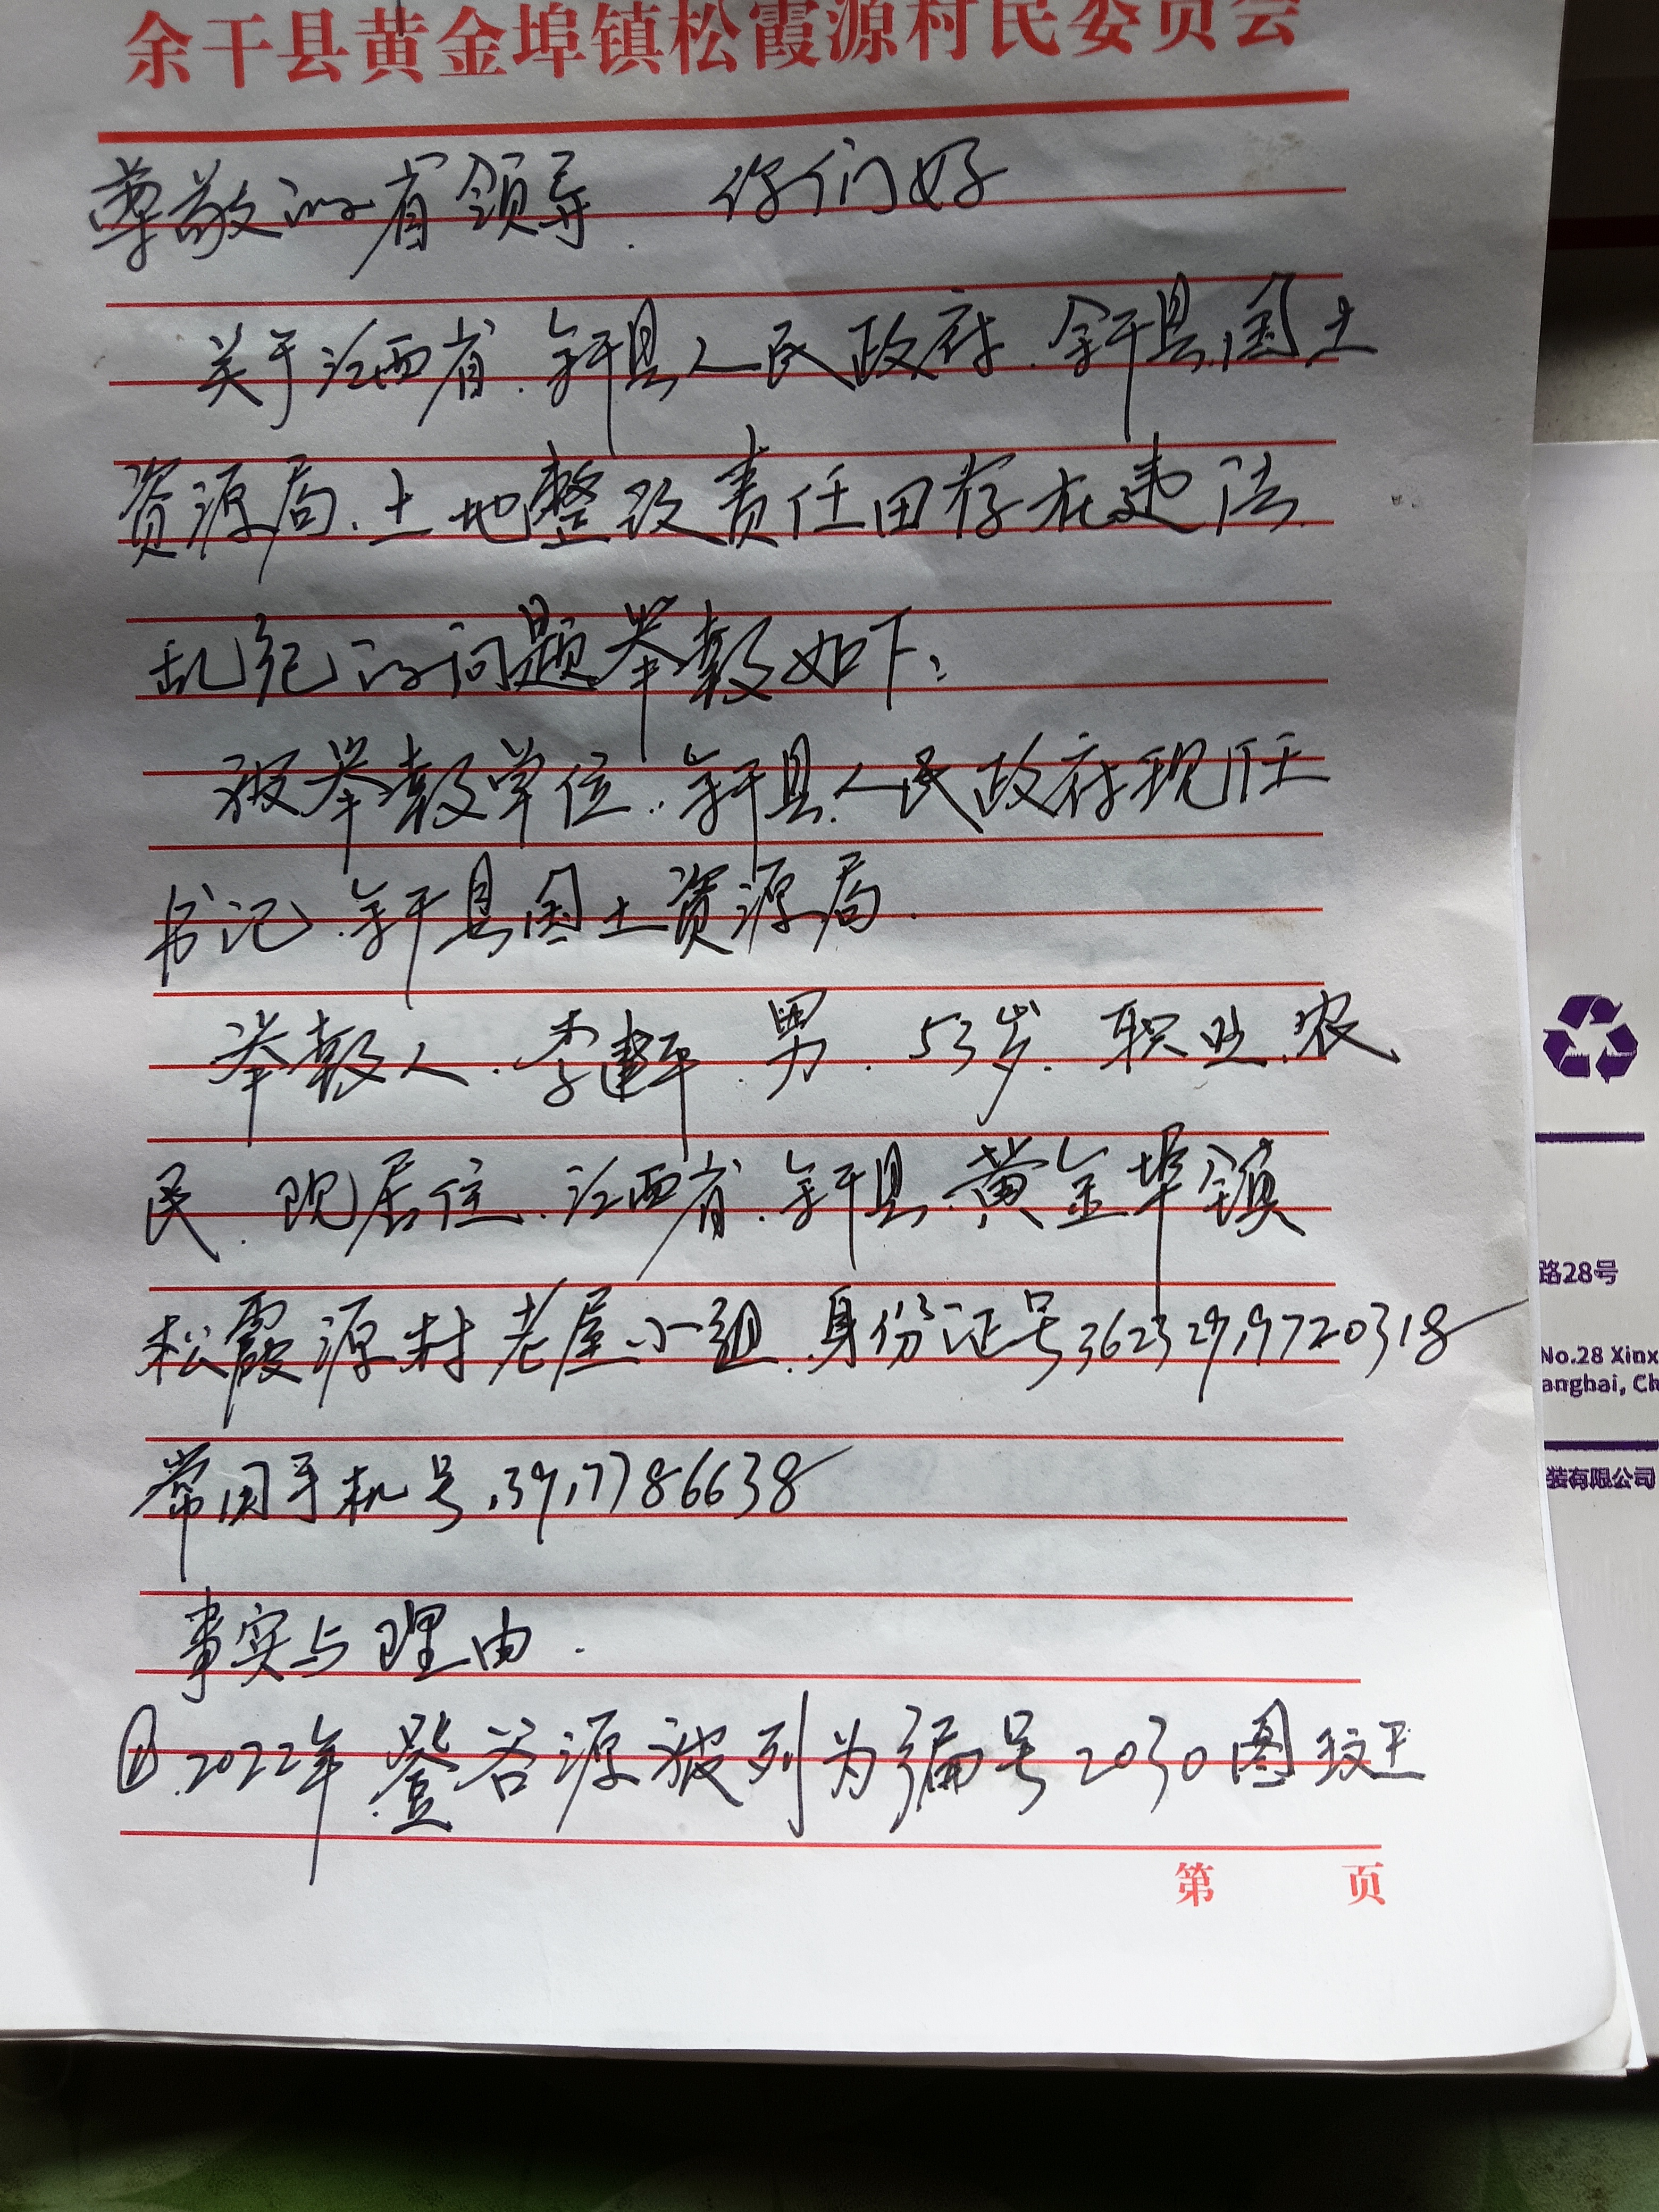 余干县黄金埠镇松霞源村民委员会
尊敬的省领导. 你们好
关于江西省.余干县人民政府.余干县国土
资源局.土地整改责任田存在违法
乱纪的问题举报如下:
被举报单位.余干县人民政府现任
书记.余干县国土资源局.
举报人.李建平.男.53岁.职业.农
民.现居住.江西省.余干县.黄金埠镇
松霞源村老屋小组.身份证号36232919720318
常用手机号13917786638
事实与理由.
①.2022年.登谷源被列为编号2030图斑
第 页
路28号
No.28 Xinx
anghai, Ch
装有限公司